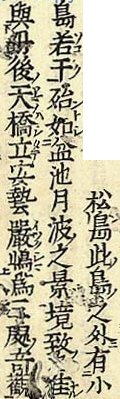 松島此島之外有小
島若干殆如盆池月波之景境致之佳
與丹後天橋立安藝嚴嶋爲三處奇觀